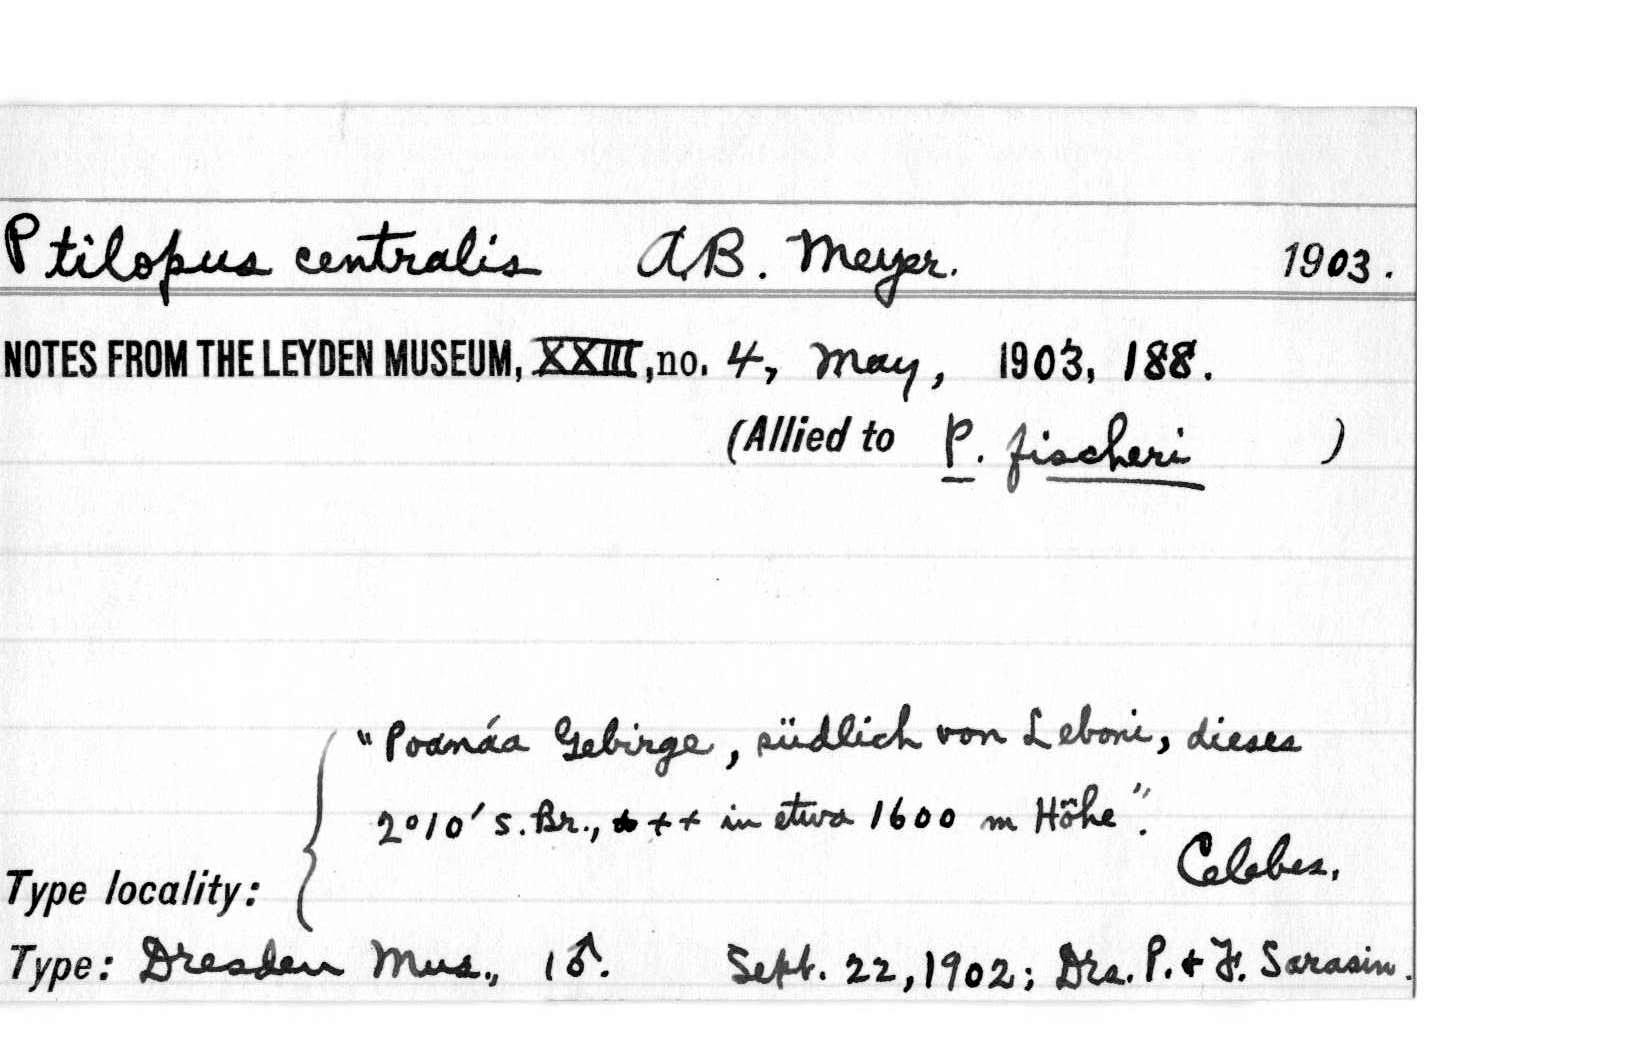 Ptilopus centralis A.B. Meyer. 1903.
NOTES FROM THE LEYDEN MUSEUM, XXIII, no. 4, May, 1903, 188.
(Allied to P. fischeri )
"Poanáa Gebirge, südlich von Leboni, dieses
2°10' S. Br., + + + in etwa 1600 m Höhe".
Celebes.
Type locality:
Type: Dresden Mus., 1♂. Sept. 22, 1902; Drs. P. + F. Sarasin.